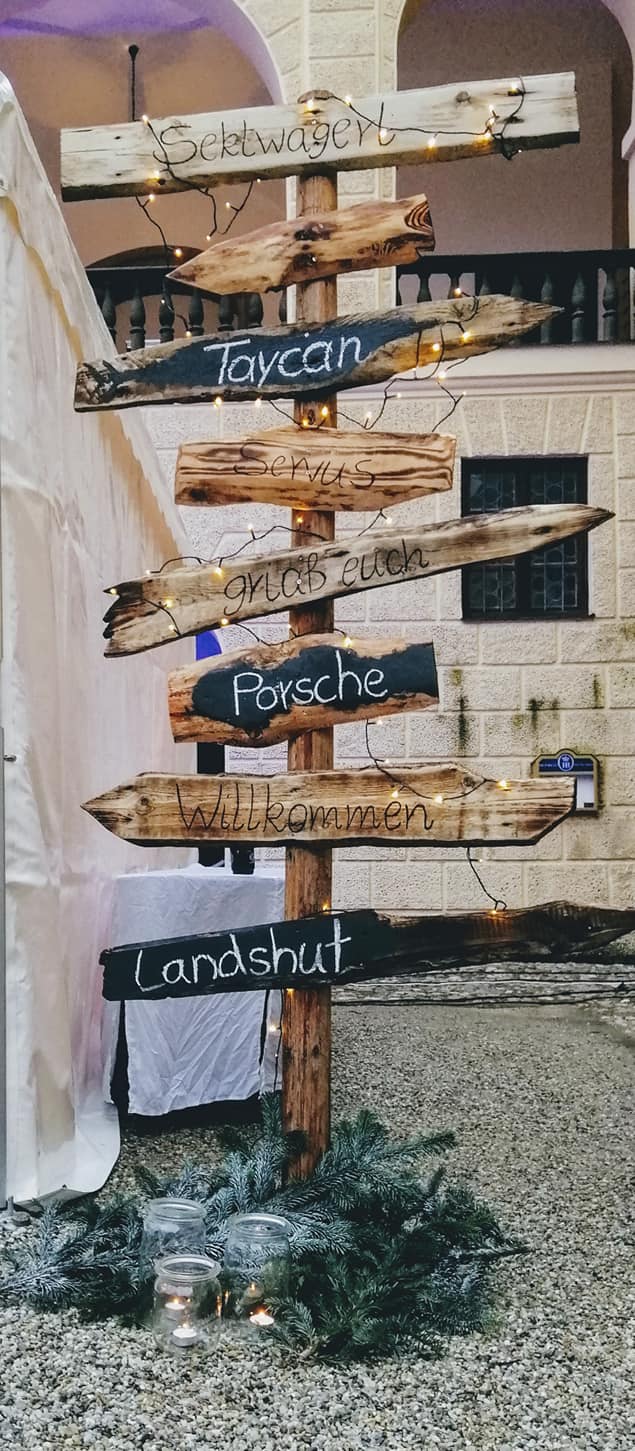 Sektwagerl
Taycan
Servus
griaß euch
Porsche
Willkommen
Landshut